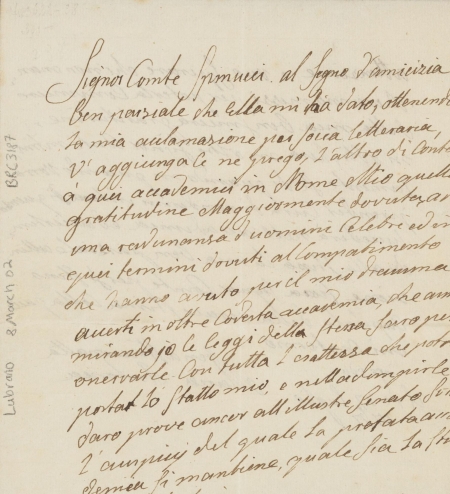 Signor Comte Spinucci al segno d'amicizia
ben parziale che Ella mi hà dato, ottenendo
la mia acclamazione per socia letteraria,
V'aggiunga Le ne prego, l'altro di
à quei accademici in Nome Mio quella
gratitudine Maggiormente dovuta ad
una radunanza d'uomini Celebri ed in
quei termini dovuti al Compatimento
che hanno avuto per il mio dramma
averti in oltre Codesta accademia, che am
mirando io le leggi della stessa saro
osservarle Con tutta l'esattezza che
portar lo stato mio, e nell'adimpirle
daro prove ancor all'illustre Senato
l'auspicij del quale la prefata
demia si mantiene, quale sia la
Lubrano 8 March 02 BRC3187